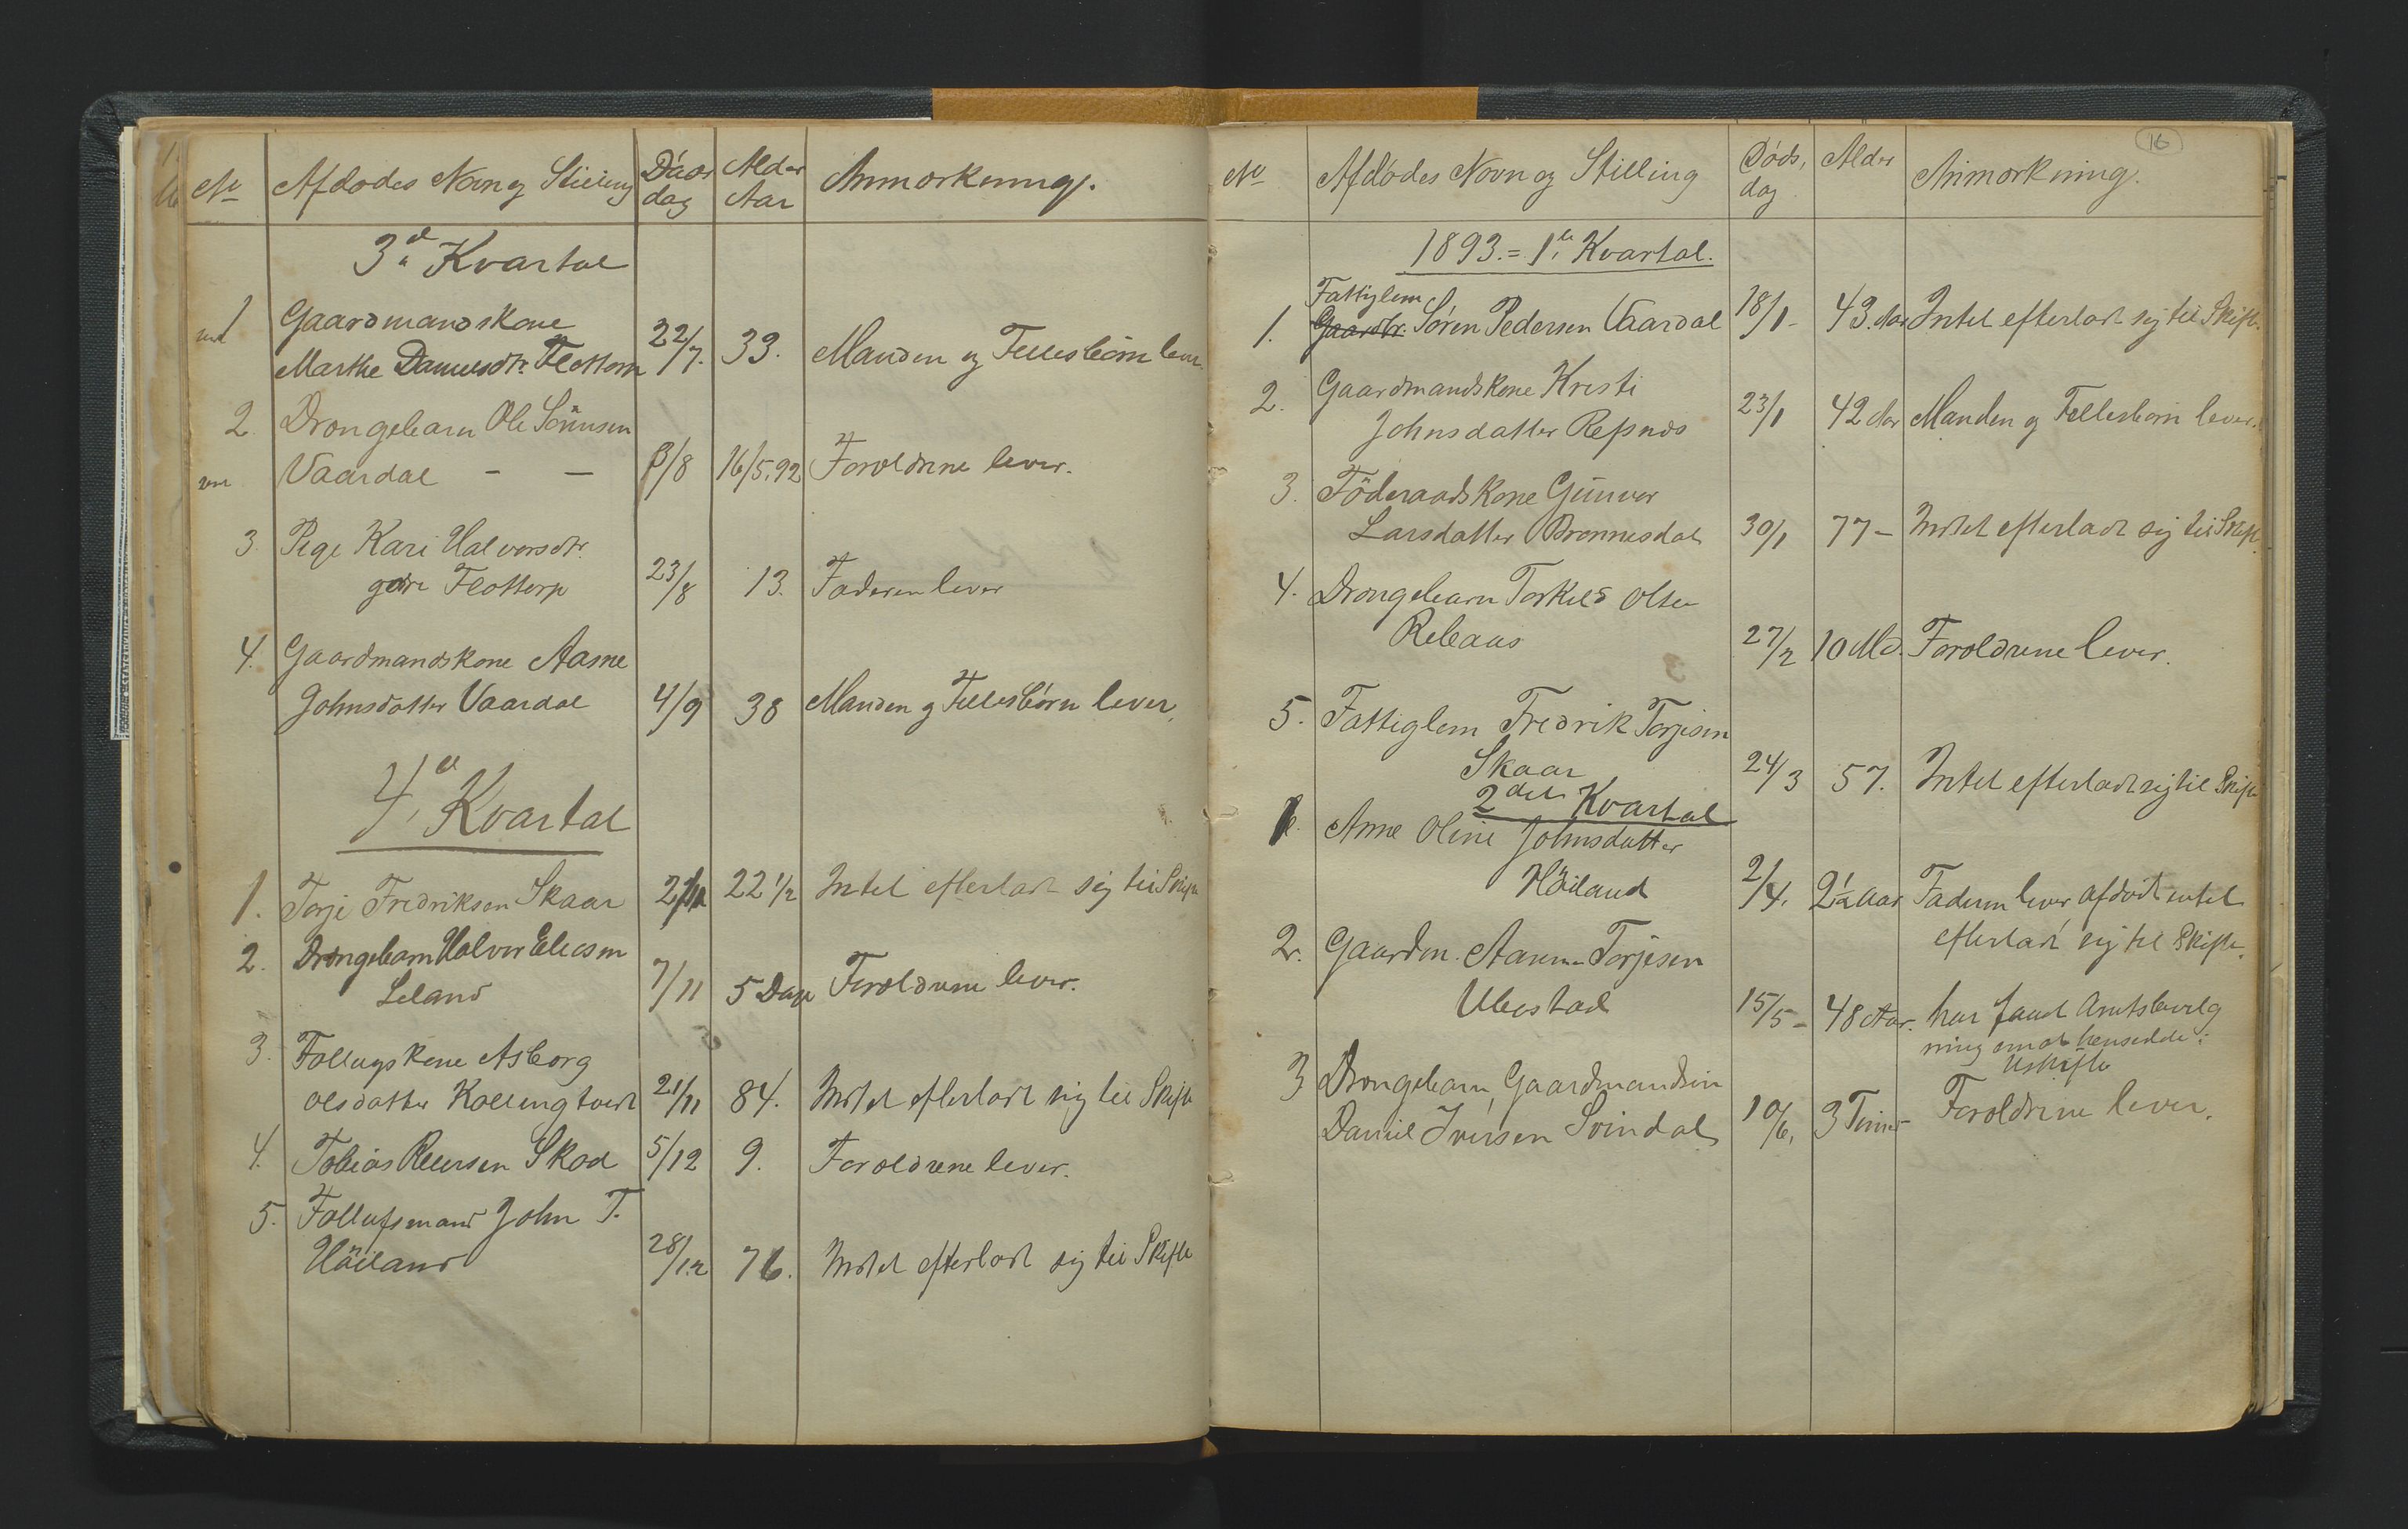 No Afdødes Navn og Stilling Døds dag Alder Aar Anmærkning.
3die Kvartal
1 Gaardmandskone
Marthe Danielsdtr. Flottorp 22/7. 33. Manden og Fællesbørn lever.
2. Drengebarn Ole Sörensen
Vaardal – – 8/8 16/5.92 Forældrene lever.
3. Pige Kari Halvorsdtr.
Flottorp 23/8 13. Faderen lever
4. Gaardmandskone Aasne
Johnsdatter Vaardal 4/9 38 Manden og Fællesbørn lever.
4de Kvartal
1. Torje Fredriksen Skaar 22 1/2 Intet efterladt sig til Skifte
2. Drengebarn Halvor Eliesen
Leland 7/11 5 Dage Forældrene lever.
3. Follugskone Asborg
Olsdatter Kollingtveit 21/11 84. Intet efterladt sig til Skifte
4. Tobias Reiersen Skod 5/12 9. Forældrene lever.
5. Follugsmand John T.
Höiland 28/12 76. Intet efterladt sig til Skifte
16
No Afdødes Navn og Stilling Døds, dag Alder Anmærkning.
1893. = 1ste Kvartal.
Fattiglem
1. Gaardbr. Søren Pedersen Vaardal 18/1 – 43. Aar Intet efterladt sig til Skifte.
2. Gaardmandskone Kristi
Johnsdatter Refsnes 23/1 42 Aar Manden og Fællesbørn lever.
3. Föderaadskone Gunvor
Larsdatter Bronnesdal 30/1 77 – Intet efterladt sig til Skifte.
4. Drengebarn Torkild Olsen
Rebaas 27/2 10 Md. Forældrene lever.
5. Fattiglem Fredrik Torjesen
Skaar 24/3 57. Intet efterladt sig til Skifte
2det Kvartal
1. Anne Oline Johnsdatter
Höiland 2/4. 2½ Aar Faderen lever afdøde intet
efterladt sig til Skifte.
2. Gaardm. Aanen Torjesen
Ubostad 15/5 – 48 Aar. har faaet Amtsbevilg
ning om at hensidde i
Uskifte
3 Drengebarn, Gaardmandsön
Daniel Iversen Svindal 10/6, 3 Timer Forældrene lever.